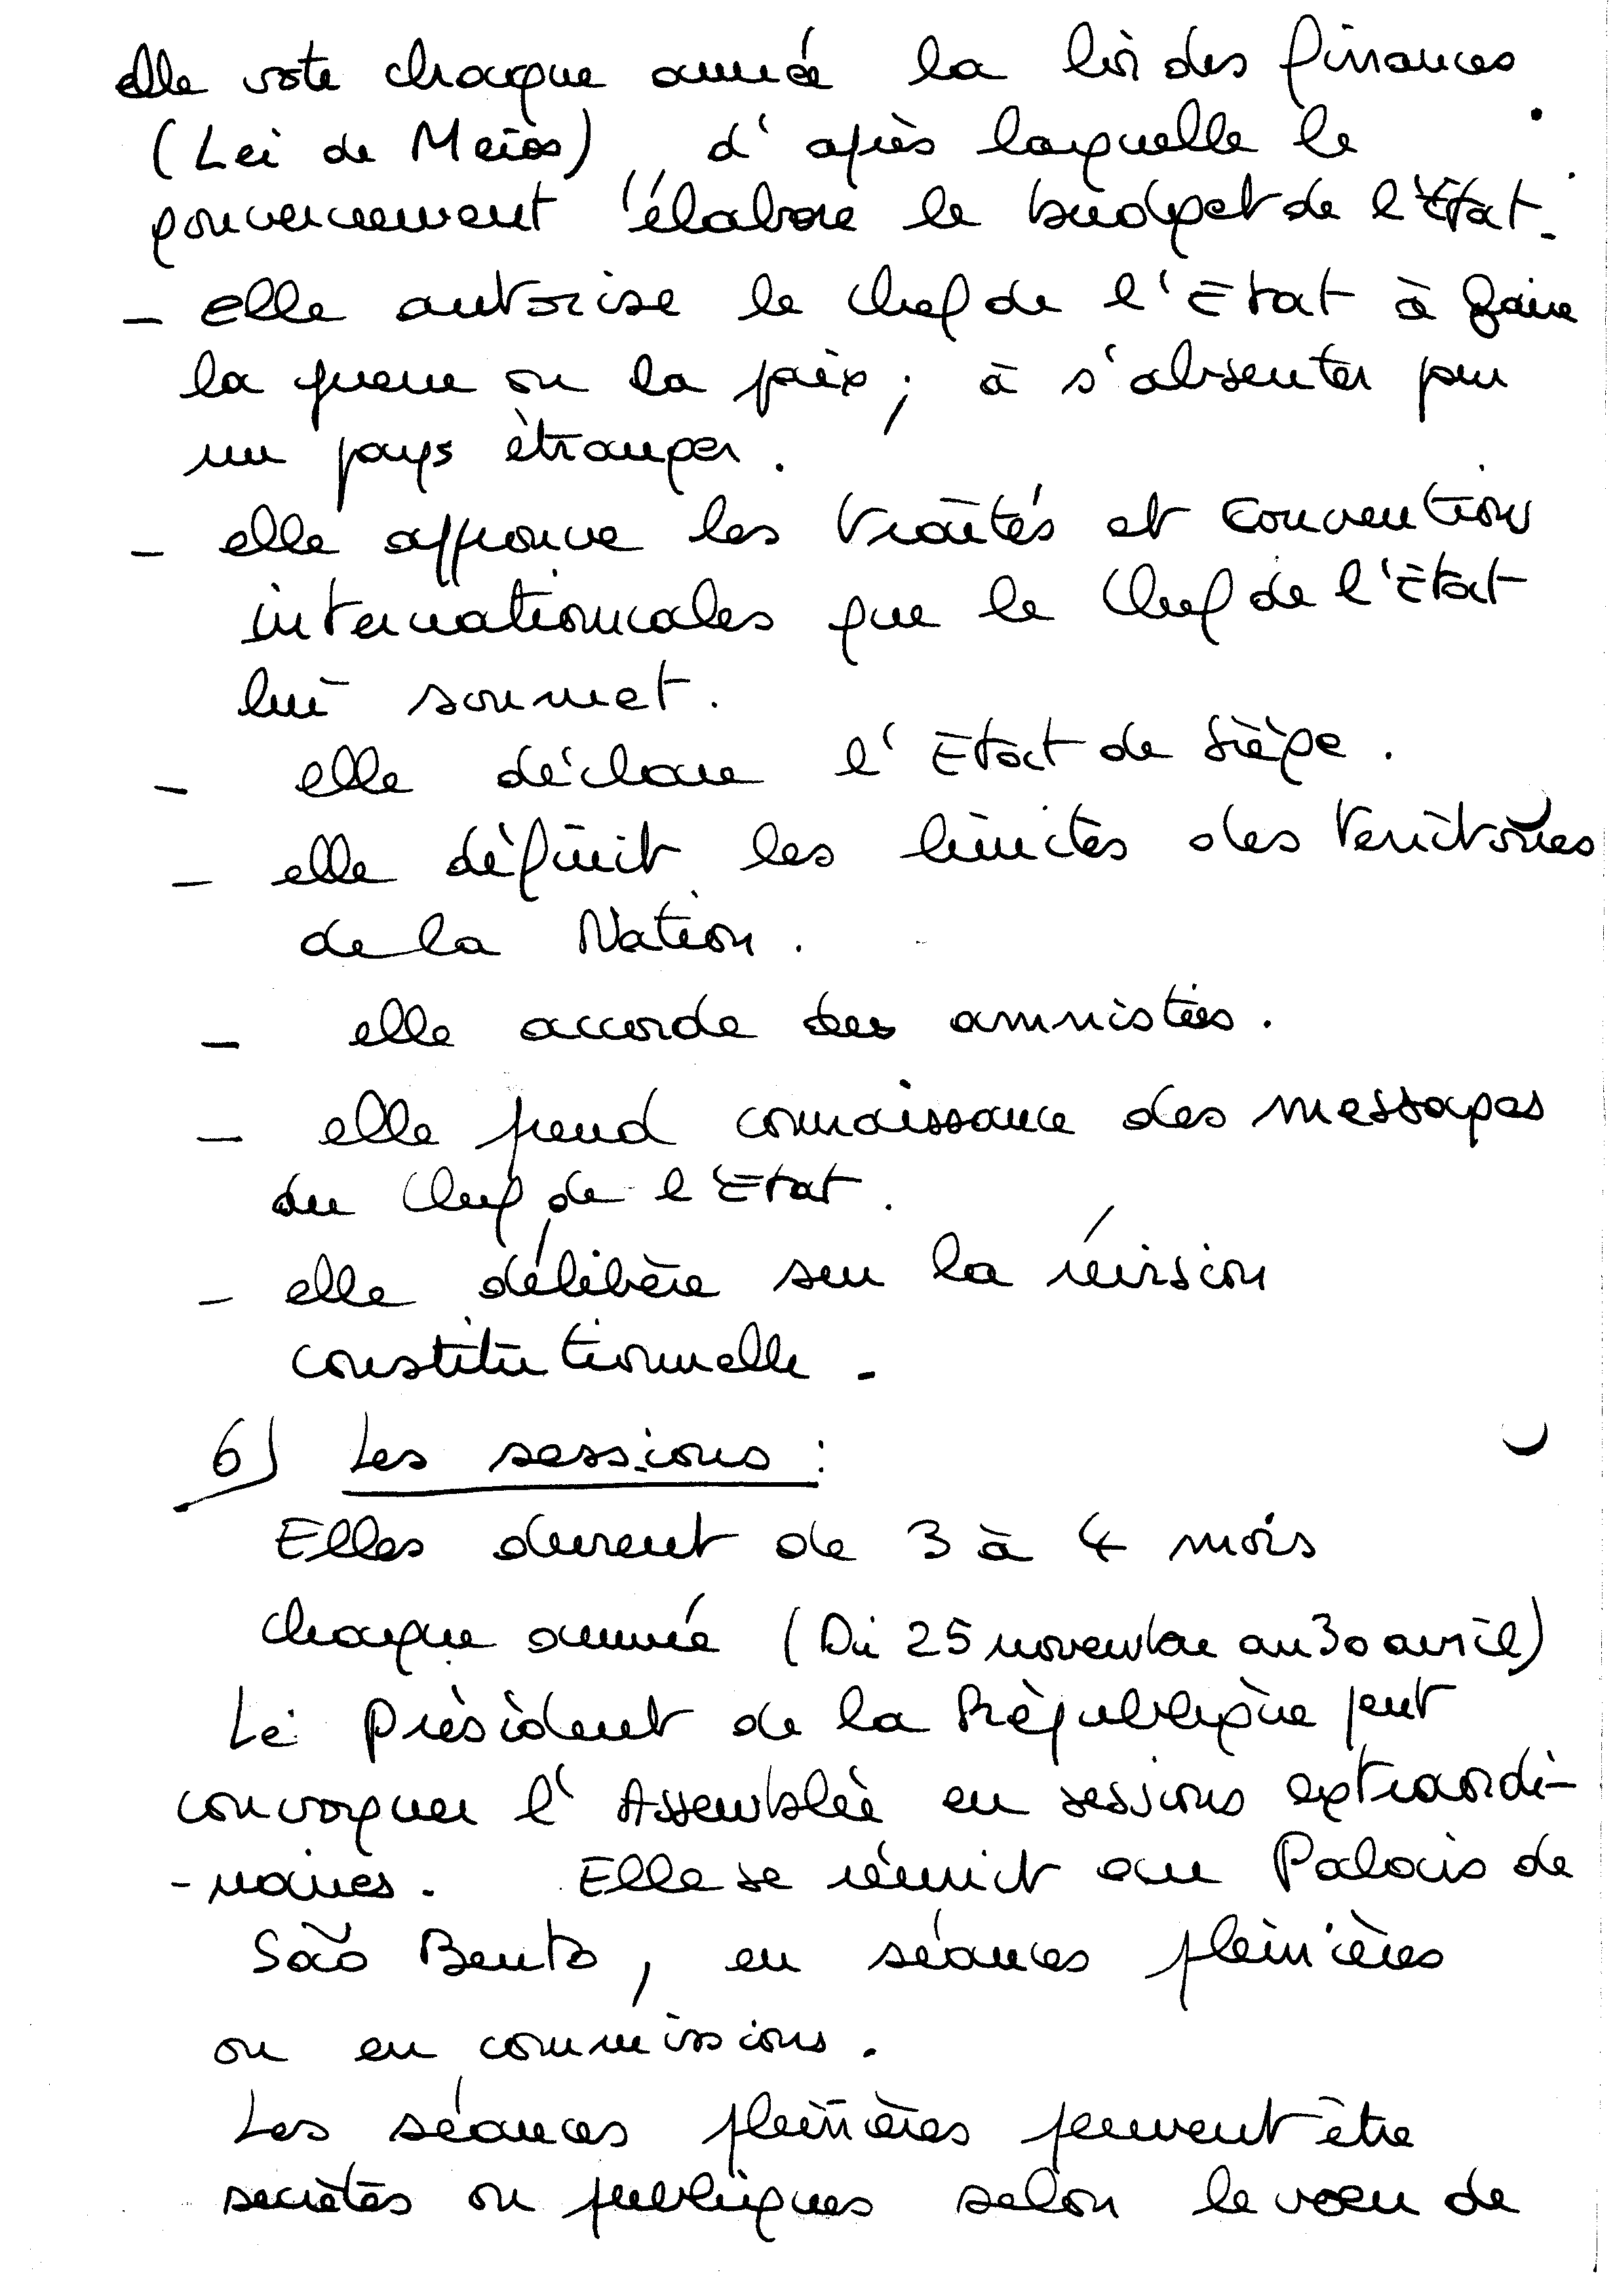 elle vote chaque année la loi des finances
(Lei de Meios) d'après laquelle le
gouvernement élabore le budget de l'Etat.
- elle autorise le Chef de l'Etat à faire
la guerre ou la paix; à s'absenter pour
un pays étranger.
- elle approuve les traités et conventions
internationales que le Chef de l'Etat
lui soumet.
- elle déclare l'Etat de siège.
- elle définit les limites des territoires
de la Nation.
- elle accorde des amnisties.
- elle prend connaissance des messages
du Chef de l'Etat.
- elle délibère sur la révision
constitutionnelle.
6) Les sessions :
Elles durent de 3 à 4 mois
chaque année (Du 25 novembre au 30 avril)
Le Président de la République peut
convoquer l'Assemblée en sessions extraordi-
-naires. Elle se réunit au Palais de
São Bento, en séances plénières
ou en commissions.
Les séances plénières peuvent être
secrètes ou publiques selon le voeu de